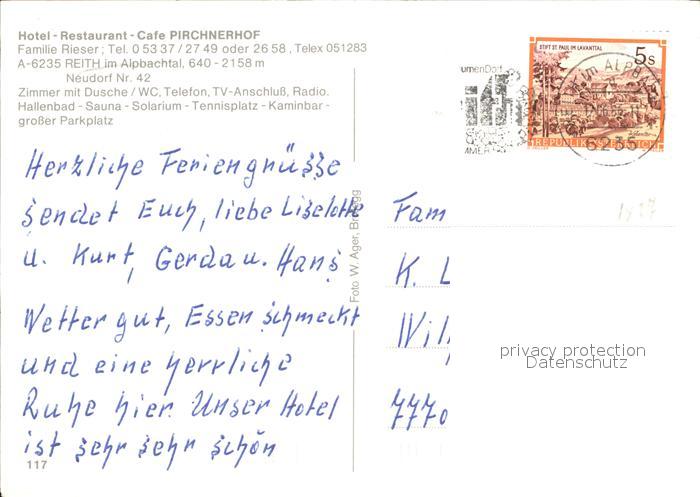 Hotel - Restaurant - Cafe PIRCHNERHOF
Familie Rieser; Tel. 0 53 37 / 27 49 oder 26 58, Telex 051283
A-6235 REITH im Alpbachtal, 640 - 2158 m
Neudorf Nr. 42
Zimmer mit Dusche / WC, Telefon, TV-Anschluß, Radio.
Hallenbad - Sauna - Solarium - Tennisplatz - Kaminbar -
großer Parkplatz
Herzliche Feriengrüsse
sendet Euch, liebe Liselotte
u. Kurt, Gerda u. Hans
Wetter gut, Essen schmeckt
und eine herrliche
Ruhe hier. Unser Hotel
ist sehr sehr schön
117
Foto W. Ager,
STIFT ST. PAUL IM LAVANTTAL
5s
REPUBLIK ÖSTERREICH
umenDorf
im ALPBA
6235
Fam
K. L
Wil
7770
privacy protection
Datenschutz